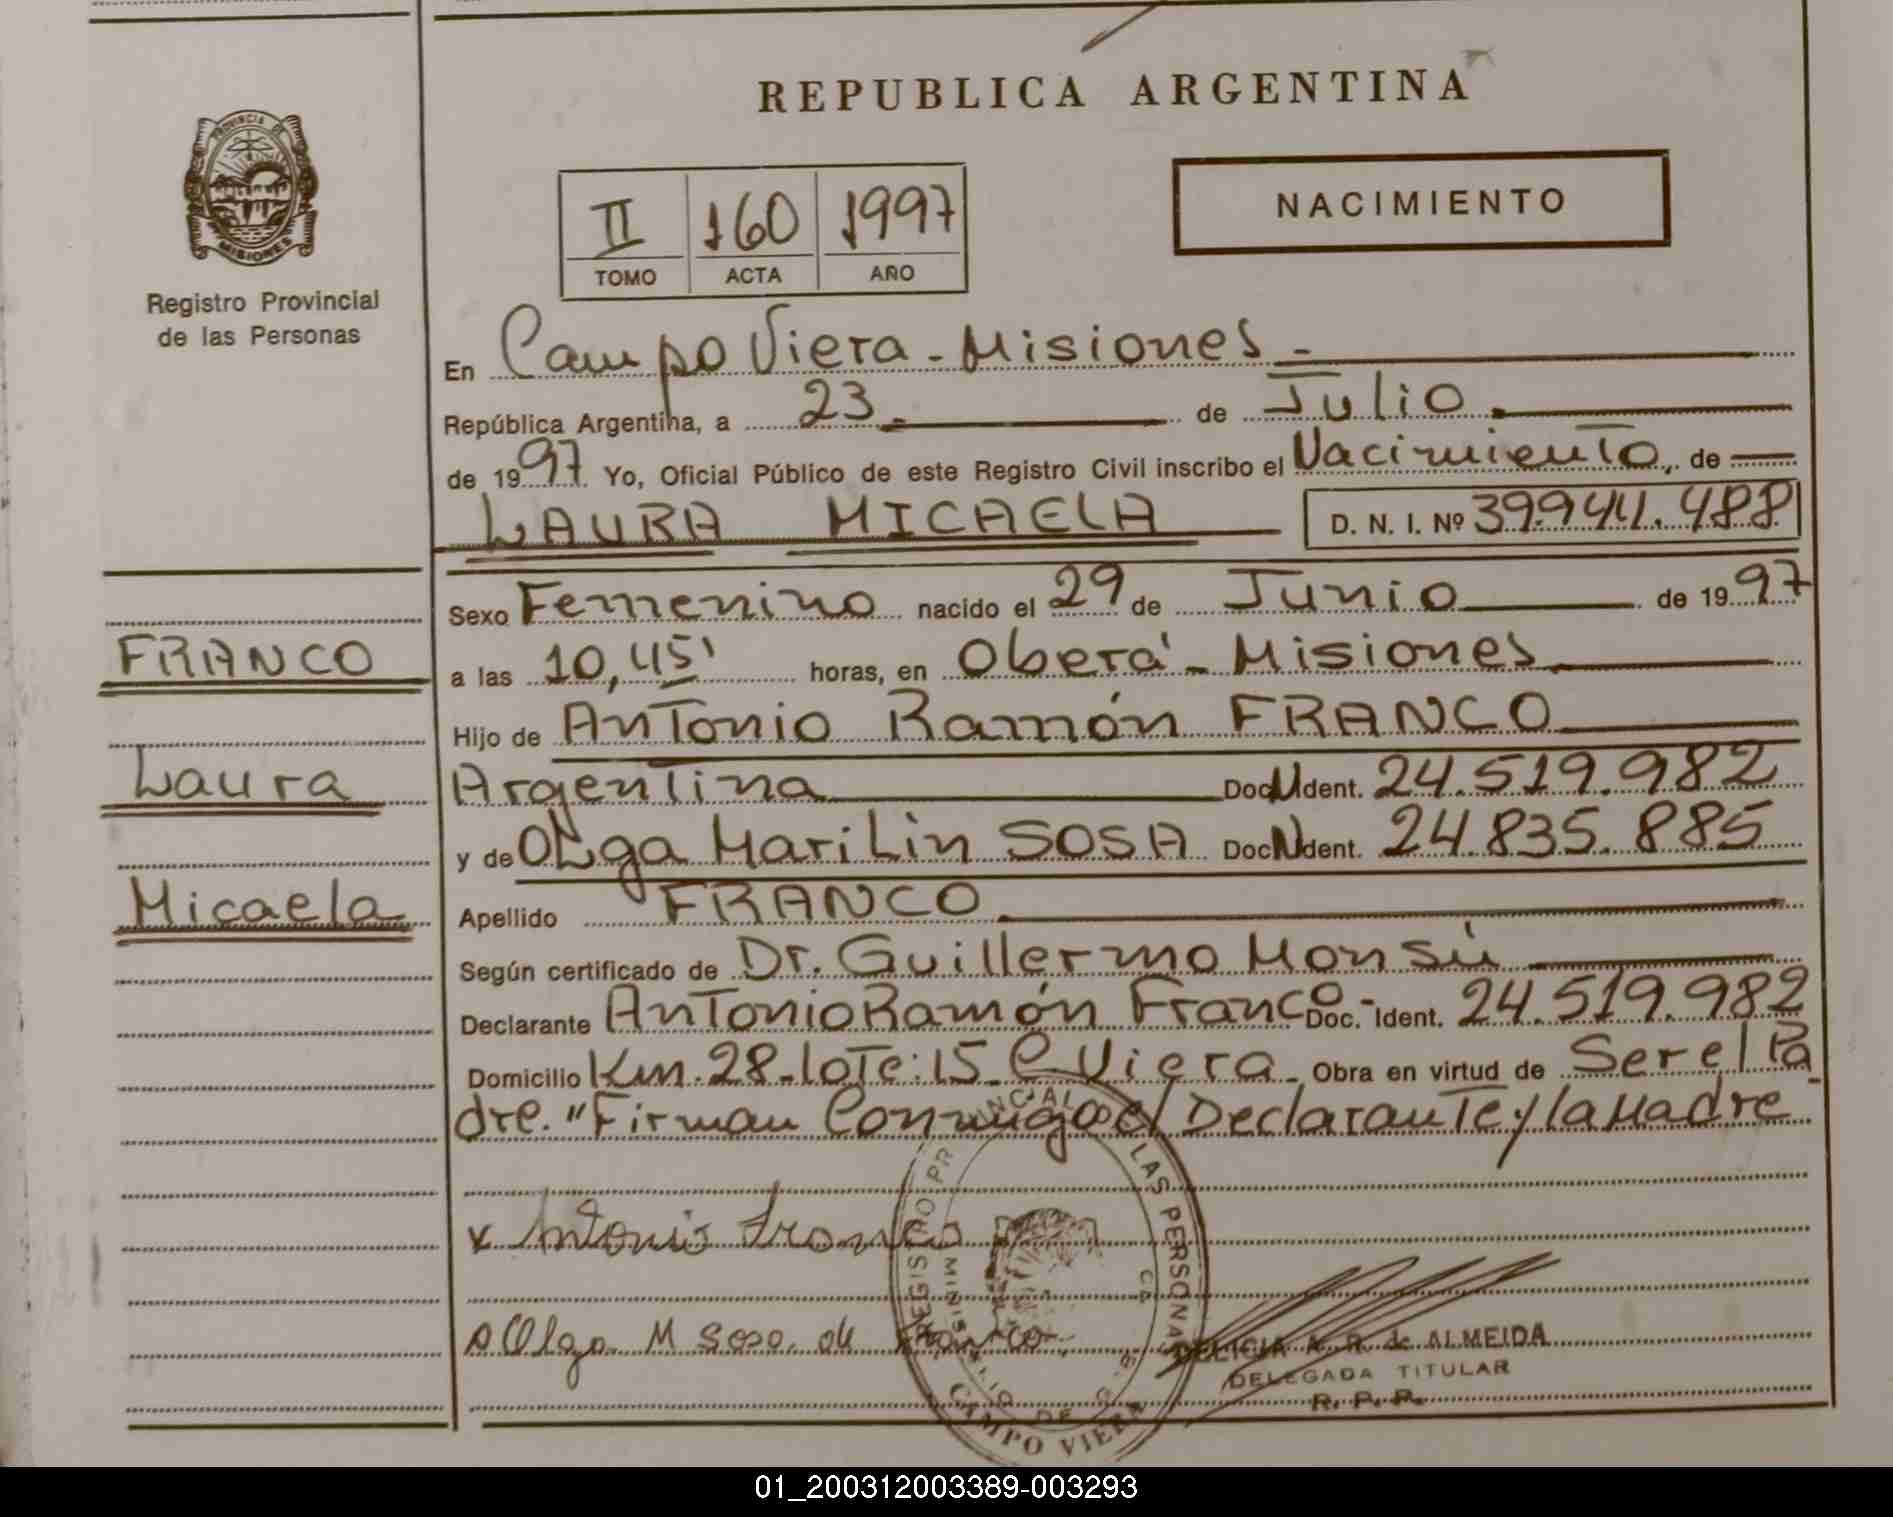 REPUBLICA ARGENTINA
PROVINCIA DE
MISIONES
Registro Provincial
de las Personas
II 160 1997
TOMO ACTA AÑO
NACIMIENTO
En Campo Viera - Misiones -
República Argentina, a 23 de Julio
de 1997 Yo, Oficial Público de este Registro Civil inscribo el Nacimiento, de
LAURA MICAELA D. N. I. Nº 39.941.488
Sexo Femenino nacido el 29 de Junio de 1997
a las 10,45' horas, en Oberá - Misiones
Hijo de Antonio Ramón FRANCO
Argentina Doc. Ident. 24.519.982
y de Olga MariLin SOSA Doc. Ident. 24.835.885
Apellido FRANCO
Según certificado de Dr. Guillermo Monsú
Declarante Antonio Ramón Franco - Doc. Ident. 24.519.982
Domicilio Km. 28 - lote: 15 - C. Viera - Obra en virtud de Ser el Pa
dre. "Firman Conmigo el Declarante y la Madre
FRANCO
Laura
Micaela
x Antonio Franco
Olga M Sosa de Franco
REGISTRO PROVINCIAL DE LAS PERSONAS
CAMPO VIERA
DELICIA A. R. de ALMEIDA
DELEGADA TITULAR
R. P. P.
01_200312003389-003293